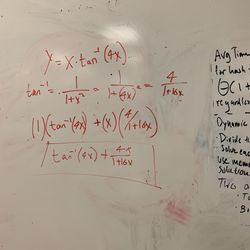 y = x · tan⁻¹ (4x)
tan⁻¹ = 1/1+x² = 1/1+(4x) = 4/1+16x
(1)(tan⁻¹(4x)) + (x)(4/1+16x)
tan⁻¹(4x) + 4x/1+16x
Avg Time
for hash
Θ(1+
regardless
Dynamic
· Divide
solve each
use mem
solution
This